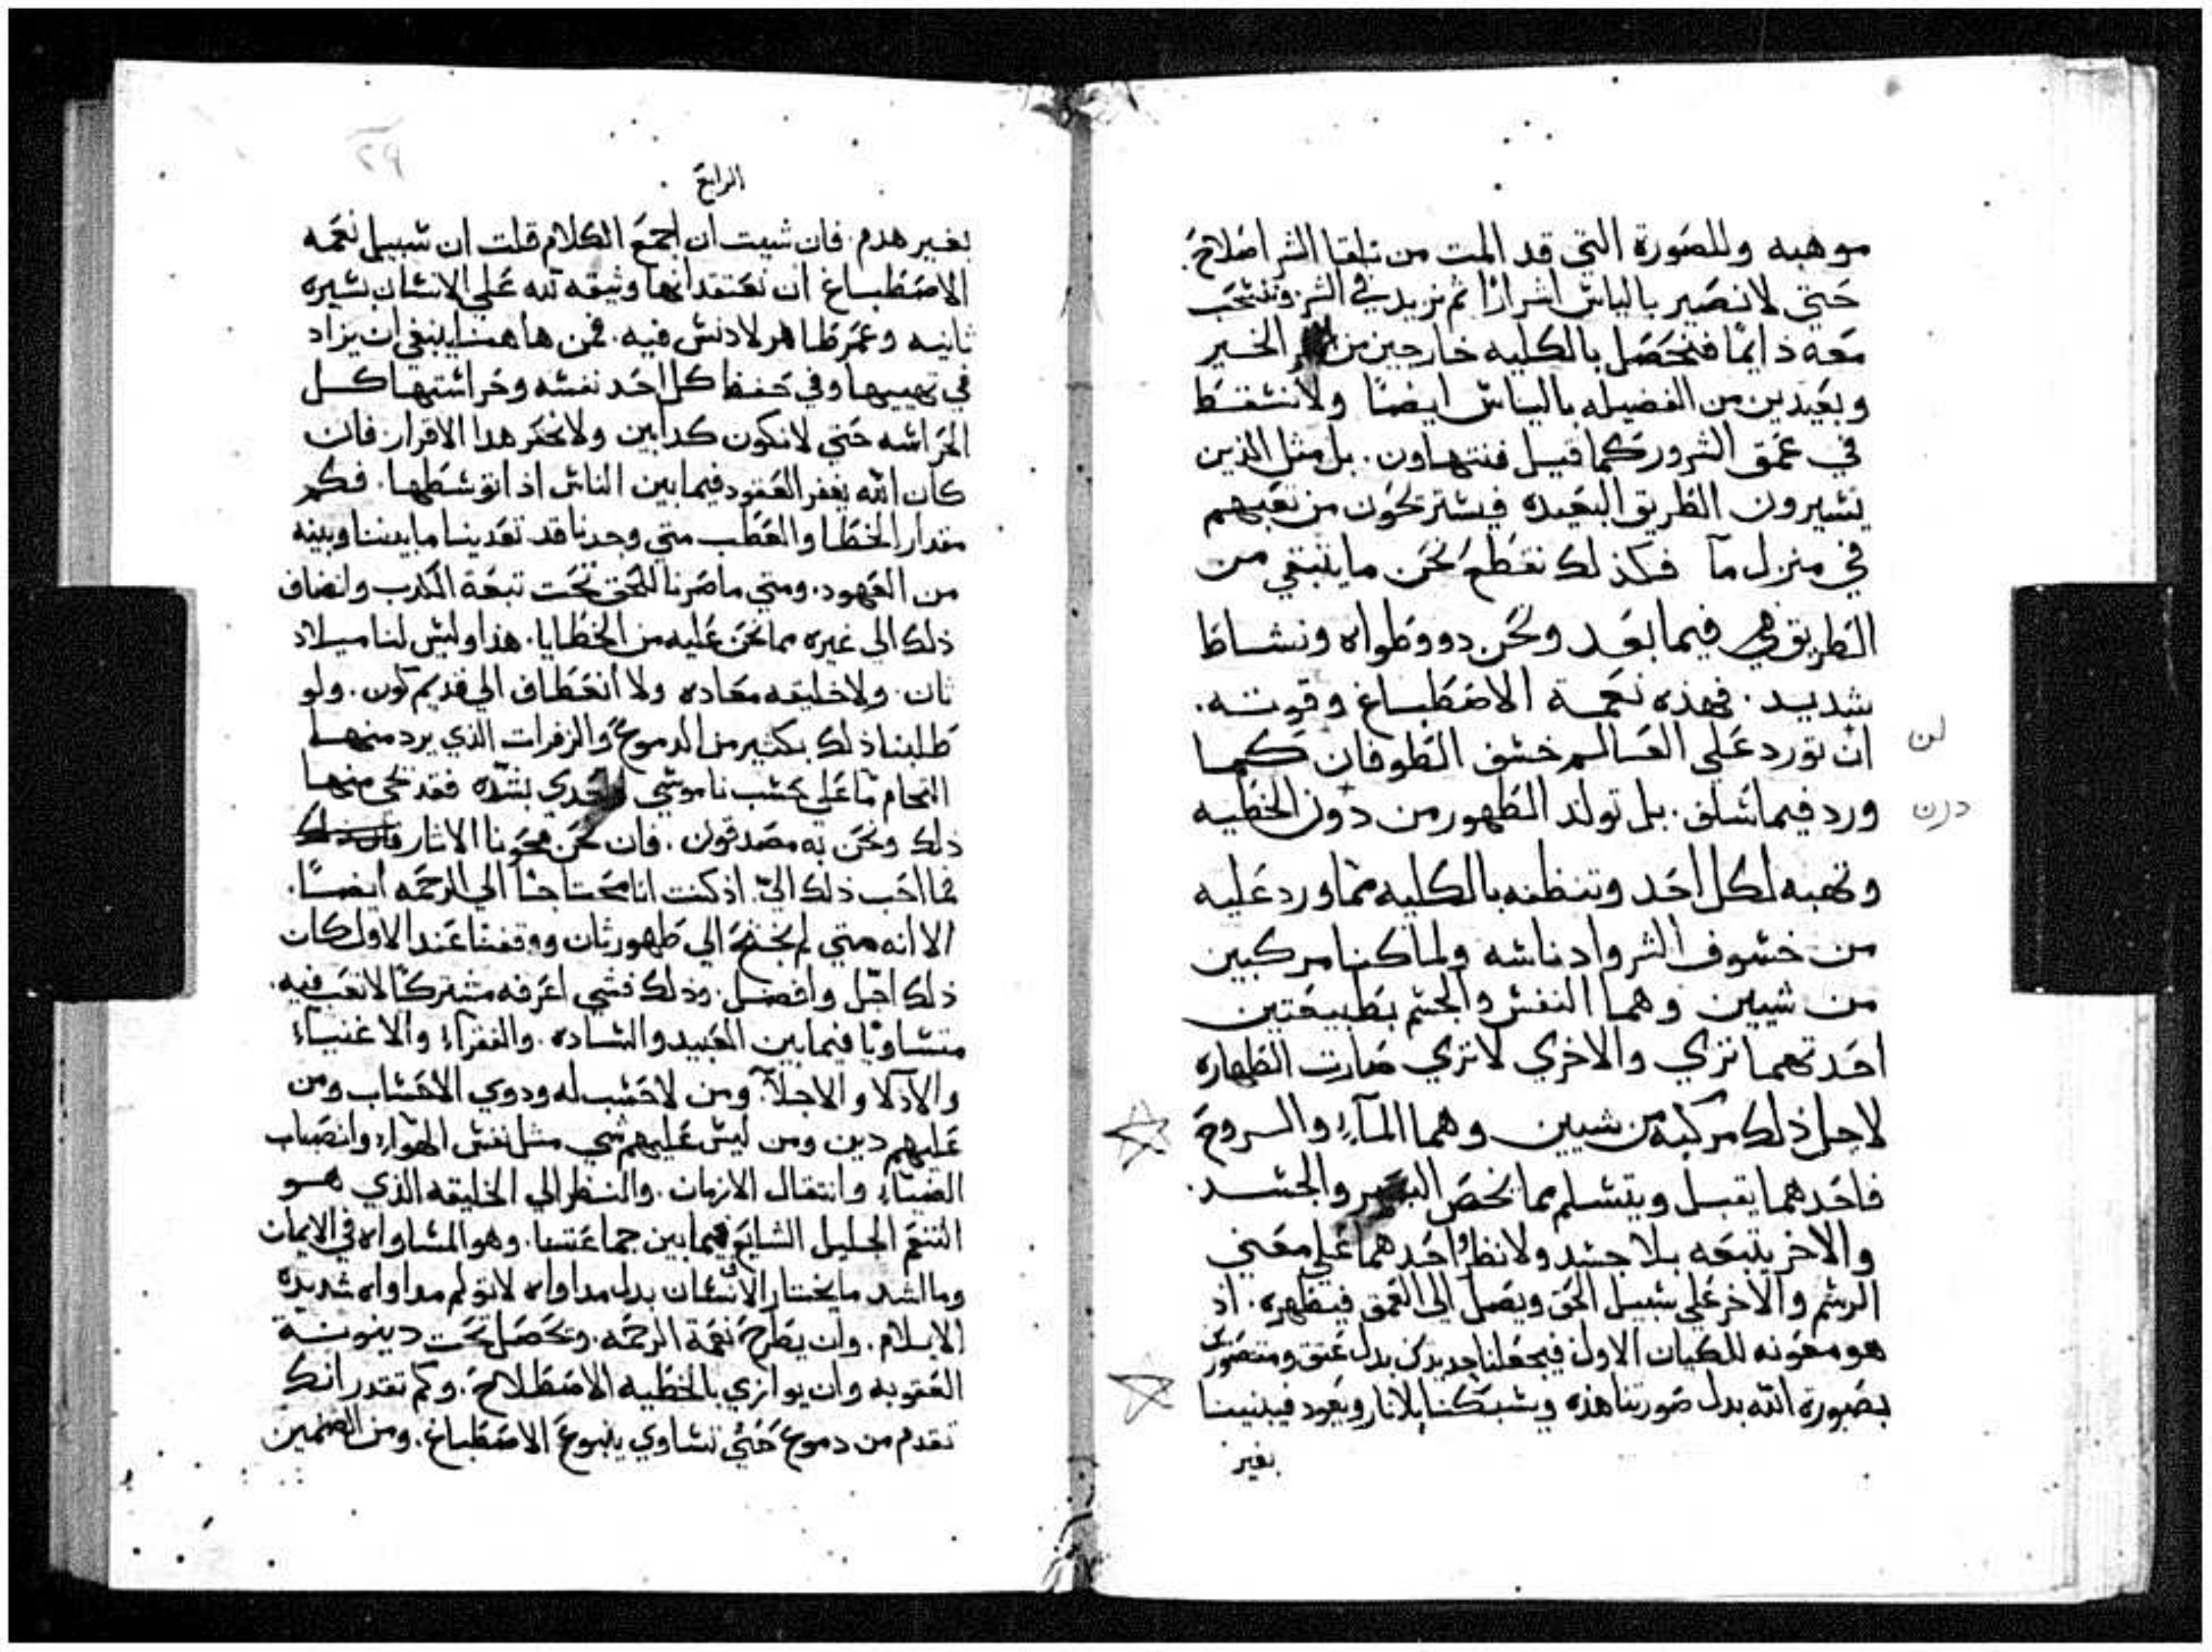 موهبه وللصورة التي قد المت من تلقا الشر اصلاح.
حتي لا نصير بالياس اشرارًا ثم نزيد في الشر وننسحب
معه دايمًا فنحصل بالكليه خارجين من الخير
وبعيدين من الفضيله بالياس ايضًا ولا نسقط
في عمق الشرور كما قيل فنتهاون. بل مثل الذين
يسيرون الطريق البعيده فيستريحون من تعبهم
في منزل ما فكذلك نقطع نحن ما يتبقي من
الطريق فيما بعد ونحن دوو طواه ونشاط
شديد. فهذه نعمة الاصطباغ وقوته.
لن
ان تورد علي العالم خسف الطوفان كما
ورد فيما سلف. بل تولد الطهور من دون الخطيه
درن
وتهبه لكل احد وتنظفه بالكليه مما ورد عليه
من خسوف الشر وادناسه ولما كنا مركبين
من شيين وهما النفس والجسم بطبيعتين
احدتهما تري والاخري لا تري صارت الطهاره
لاجل ذلك مركبه من شيين وهما المآء والروح
فاحدهما يقبل ويتسلم مما يخص البصر والجسد.
والاخر يتبعه بلا جسد ولا نظر واحدهما علي معني
الرسم والاخر علي سبيل الحق ويصل الي العمق فيطهره. اذ
هو معونه للكيان الاول فيجعلنا جديدين بدل عتق ومتصورين
بصورة الله بدل صورتنا هذه ويسبكنا بلا نار ويعود فيبنينا
بغير
٢٩
الرابع
بغير هدم. فان شيت ان اجمع الكلام قلت ان سبيل نعمه
الاصطباغ ان نعتقد انها وثيقه لله علي الانسان بسيره
ثانيه وعمر طاهر لا دنس فيه. فمن هاهنا ينبغي ان يزاد
في تهييبها وفي حفظ كل احد نفسه وحراستها كل
الحراسه حتي لا نكون كدابين ولا نحقر هدا الاقرار فان
كان الله يغفر العقود فيما بين الناس اذا توسطها. فكم
مقدار الخطا والعطب متي وجدنا قد تعدينا ما بيننا وبينه
من العهود. ومتي ما صرنا للحق تحت تبعة الكدب وانضاف
ذلك الي غيره مما نحن عليه من الخطايا. هذا وليس لنا ميلاد
ثان. ولا خليقه معاده ولا انعطاف الي قديم كون. ولو
طلبنا ذلك بكثير من الدموع والزفرات الذي يرد منها
التحام ما علي حسب ناموسي بشدّه فقد نحي منها
ذلك ونحن به مصدقون. فان نحن محونا الاثار
فما احب ذلك اليّ. اذ كنت انا محتاجًا الي الرحمه ايضًا.
الا انه متي لم نحتج الي طهور ثان ووقفنا عند الاول كان
ذلك اجّل وافضل. وذلك فشي اعرفه مشتركًا لا تعب فيه.
متساويًا فيما بين العبيد والساده. والفقرآء والاغنياء
والاذلا والاجلآ. ومن لا حسب له ودوي الاحساب ومن
عليهم دين ومن ليس عليهم شي مثل نفس الهوآء وانصباب
الضياء وانتقال الازمان. والنظر الي الخليقه الذي هو
التنعم الجليل الشايع فيما بين جماعتنا. وهو المساواه في الايمان
وما اشد ما يختار الانسان بدل مداواه لا تولم مداواه شديدة
الايلام. وان يطرح نعمة الرحمه. ويحصل تحت دينونة
العقوبه وان يوازي بالخطيه الاصطلاح. وكم تقدر انك
تقدم من دموع حتي تساوي ينبوع الاصطباغ. ومن الضمين